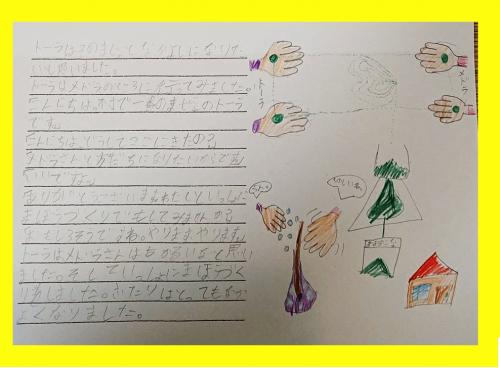 トーラは2のまじょとなかよしになりた
いと思いました。
トーラはメドラのところに行ってみました。
こんにちは。村で一番のまじょのトーラ
です。
こんにちは。どうしてここにきたの?
メドラさんと友だちになりたいからです。
いいですよ。
ありがとうございます。わたしといっしょに
まほうづくりでもしてみますか?
おもしろそうですね。やりますやります。
トーラはメドラさんはもかるいなと思い
ました。そしていっしょにまほうづく
りをしました。ふたりはとってもなか
よくなりました。
トーラ
メドラ